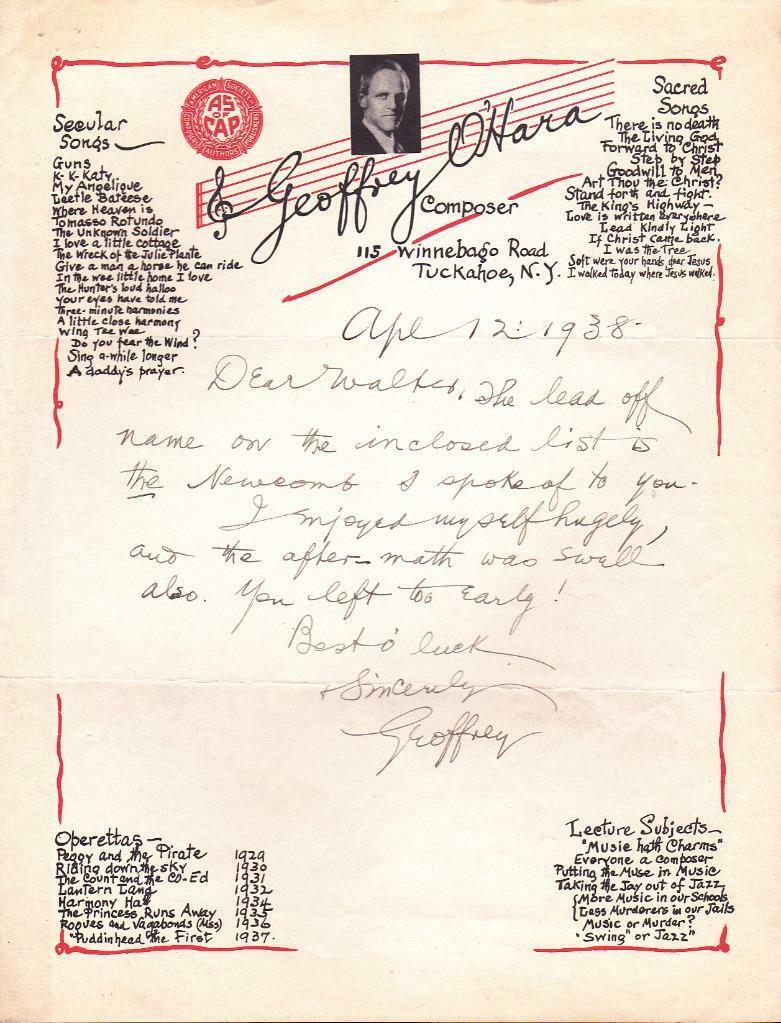 AMERICAN SOCIETY
COMPOSERS AUTHORS PUBLISHERS
AS
OF
CAP
Geoffrey O'Hara
Composer
115 Winnebago Road
Tuckahoe, N.Y.
Secular
Songs —
Guns
K-K-Katy
My Angelique
Leetle Bateese
Where Heaven is
Tomasso Rotundo
The Unknown Soldier
I love a little cottage
The Wreck of the Julie Plante
Give a man a horse he can ride
In the wee little home I love
The Hunter's loud halloo
your eyes have told me
Three-minute harmonies
A little close harmony
Wing Tee Wee
Do you fear the Wind?
Sing a-while longer
A daddy's prayer.
Sacred
Songs
There is no death
The Living God
Forward to Christ
Step by Step
Goodwill to Men,
Art Thou the Christ?
Stand forth and fight.
The King's Highway —
Love is written everywhere
Lead Kindly Light
If Christ came back.
I was the Tree
Soft were your hands, dear Jesus
I walked today where Jesus walked.
Apl 12: 1938-
Dear Walter, The lead off
name on the inclosed list is
the Newcomb I spoke of to you-
I enjoyed myself hugely,
and the after-math was swell
also. You left too early!
Best o' luck
+ Sincerely
Geoffrey
Operettas —
Peggy and the Pirate 1929
Riding down the sky 1930
The Count and the Co-Ed 1931
Lantern Land 1932
Harmony Hall 1934
The Princess Runs Away 1935
Rogues and Vagabonds (Mss) 1936
"Puddinhead" the First 1937.
Lecture Subjects —
"Music hath Charms"
Everyone a Composer
Putting the Muse in Music
Taking the Jay out of Jazz
{More Music in our Schools
{Less Murderers in our Jails
Music or Murder?
"Swing" or Jazz"